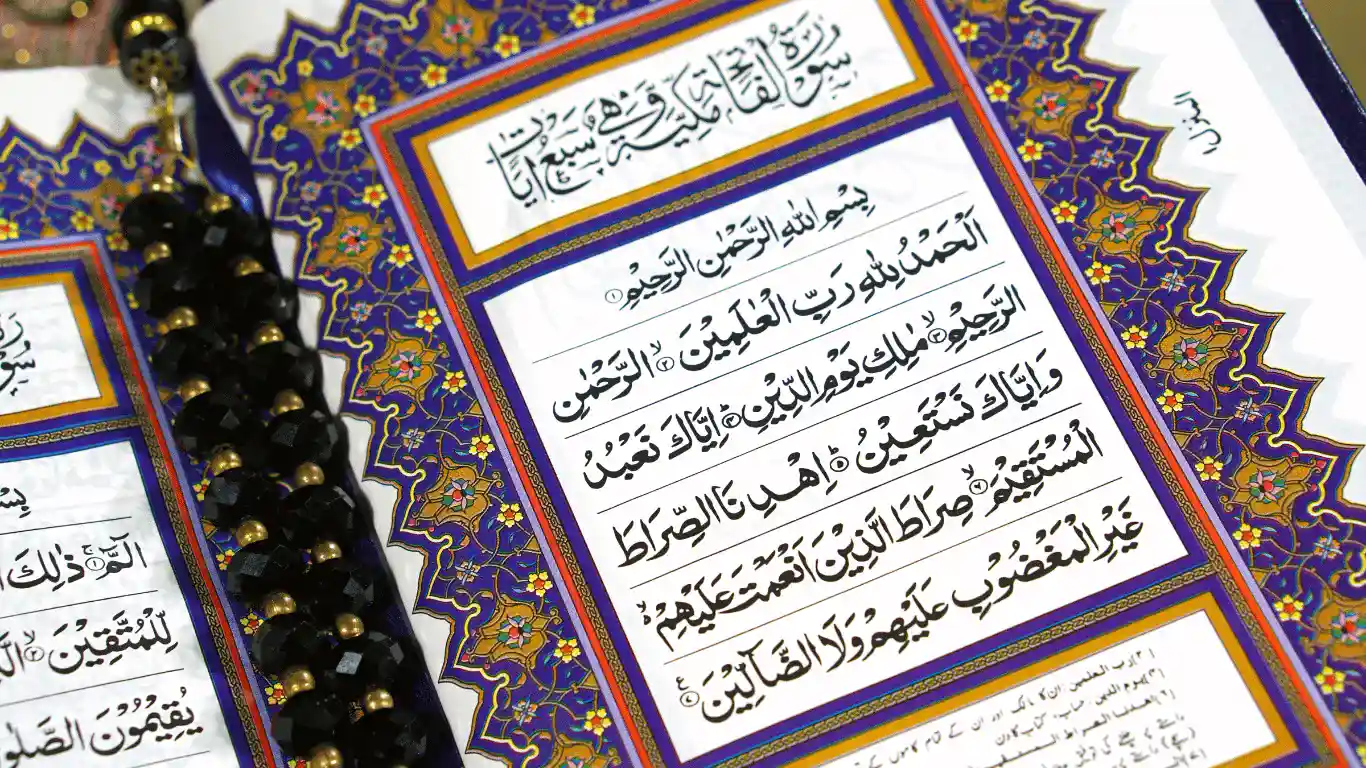 سُوْرَةُ الْفَاتِحَةِ مَكِّيَّةٌ وَّهِيَ سَبْعُ اٰيَاتٍ
بِسْمِ اللّٰهِ الرَّحْمٰنِ الرَّحِيْمِ ۝۱
اَلْحَمْدُ لِلّٰهِ رَبِّ الْعٰلَمِيْنَ ۝۲ۙ الرَّحْمٰنِ
الرَّحِيْمِ ۝۳ۙ مٰلِكِ يَوْمِ الدِّيْنِ ۝۴ؕ اِيَّاكَ نَعْبُدُ
وَاِيَّاكَ نَسْتَعِيْنُ ۝۵ؕ اِهْدِنَا الصِّرَاطَ
الْمُسْتَقِيْمَ ۝۶ۙ صِرَاطَ الَّذِيْنَ اَنْعَمْتَ عَلَيْهِمْ ۙ۬
غَيْرِ الْمَغْضُوْبِ عَلَيْهِمْ وَلَا الضَّآلِّيْنَ ۝۷ع
الٓمّٓ ۝۱ۚ ذٰلِكَ
لِّلْمُتَّقِيْنَ ۝۲ۙ
يُقِيْمُوْنَ